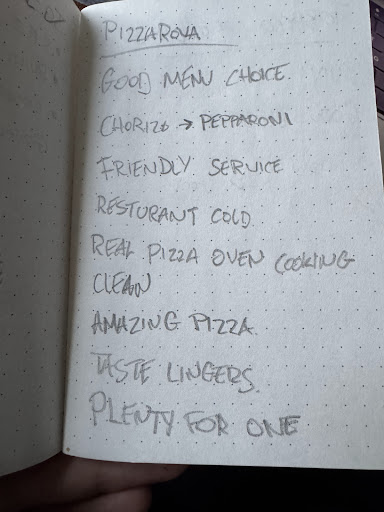 PIZZAROVA
GOOD MENU CHOICE.
CHORIZO → PEPPARONI
FRIENDLY SERVICE
RESTURANT COLD
REAL PIZZA OVEN COOKING
CLEAN
AMAZING PIZZA.
TASTE LINGERS.
PLENTY FOR ONE